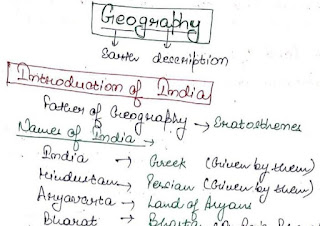 Geography
Earth description
Introduction of India
Father of Geography → Eratosthenes
Names of India -
India → Greek (Given by them)
Hindustan → Persian (Given by them)
Aryavarta → Land of Aryans
Bharat →